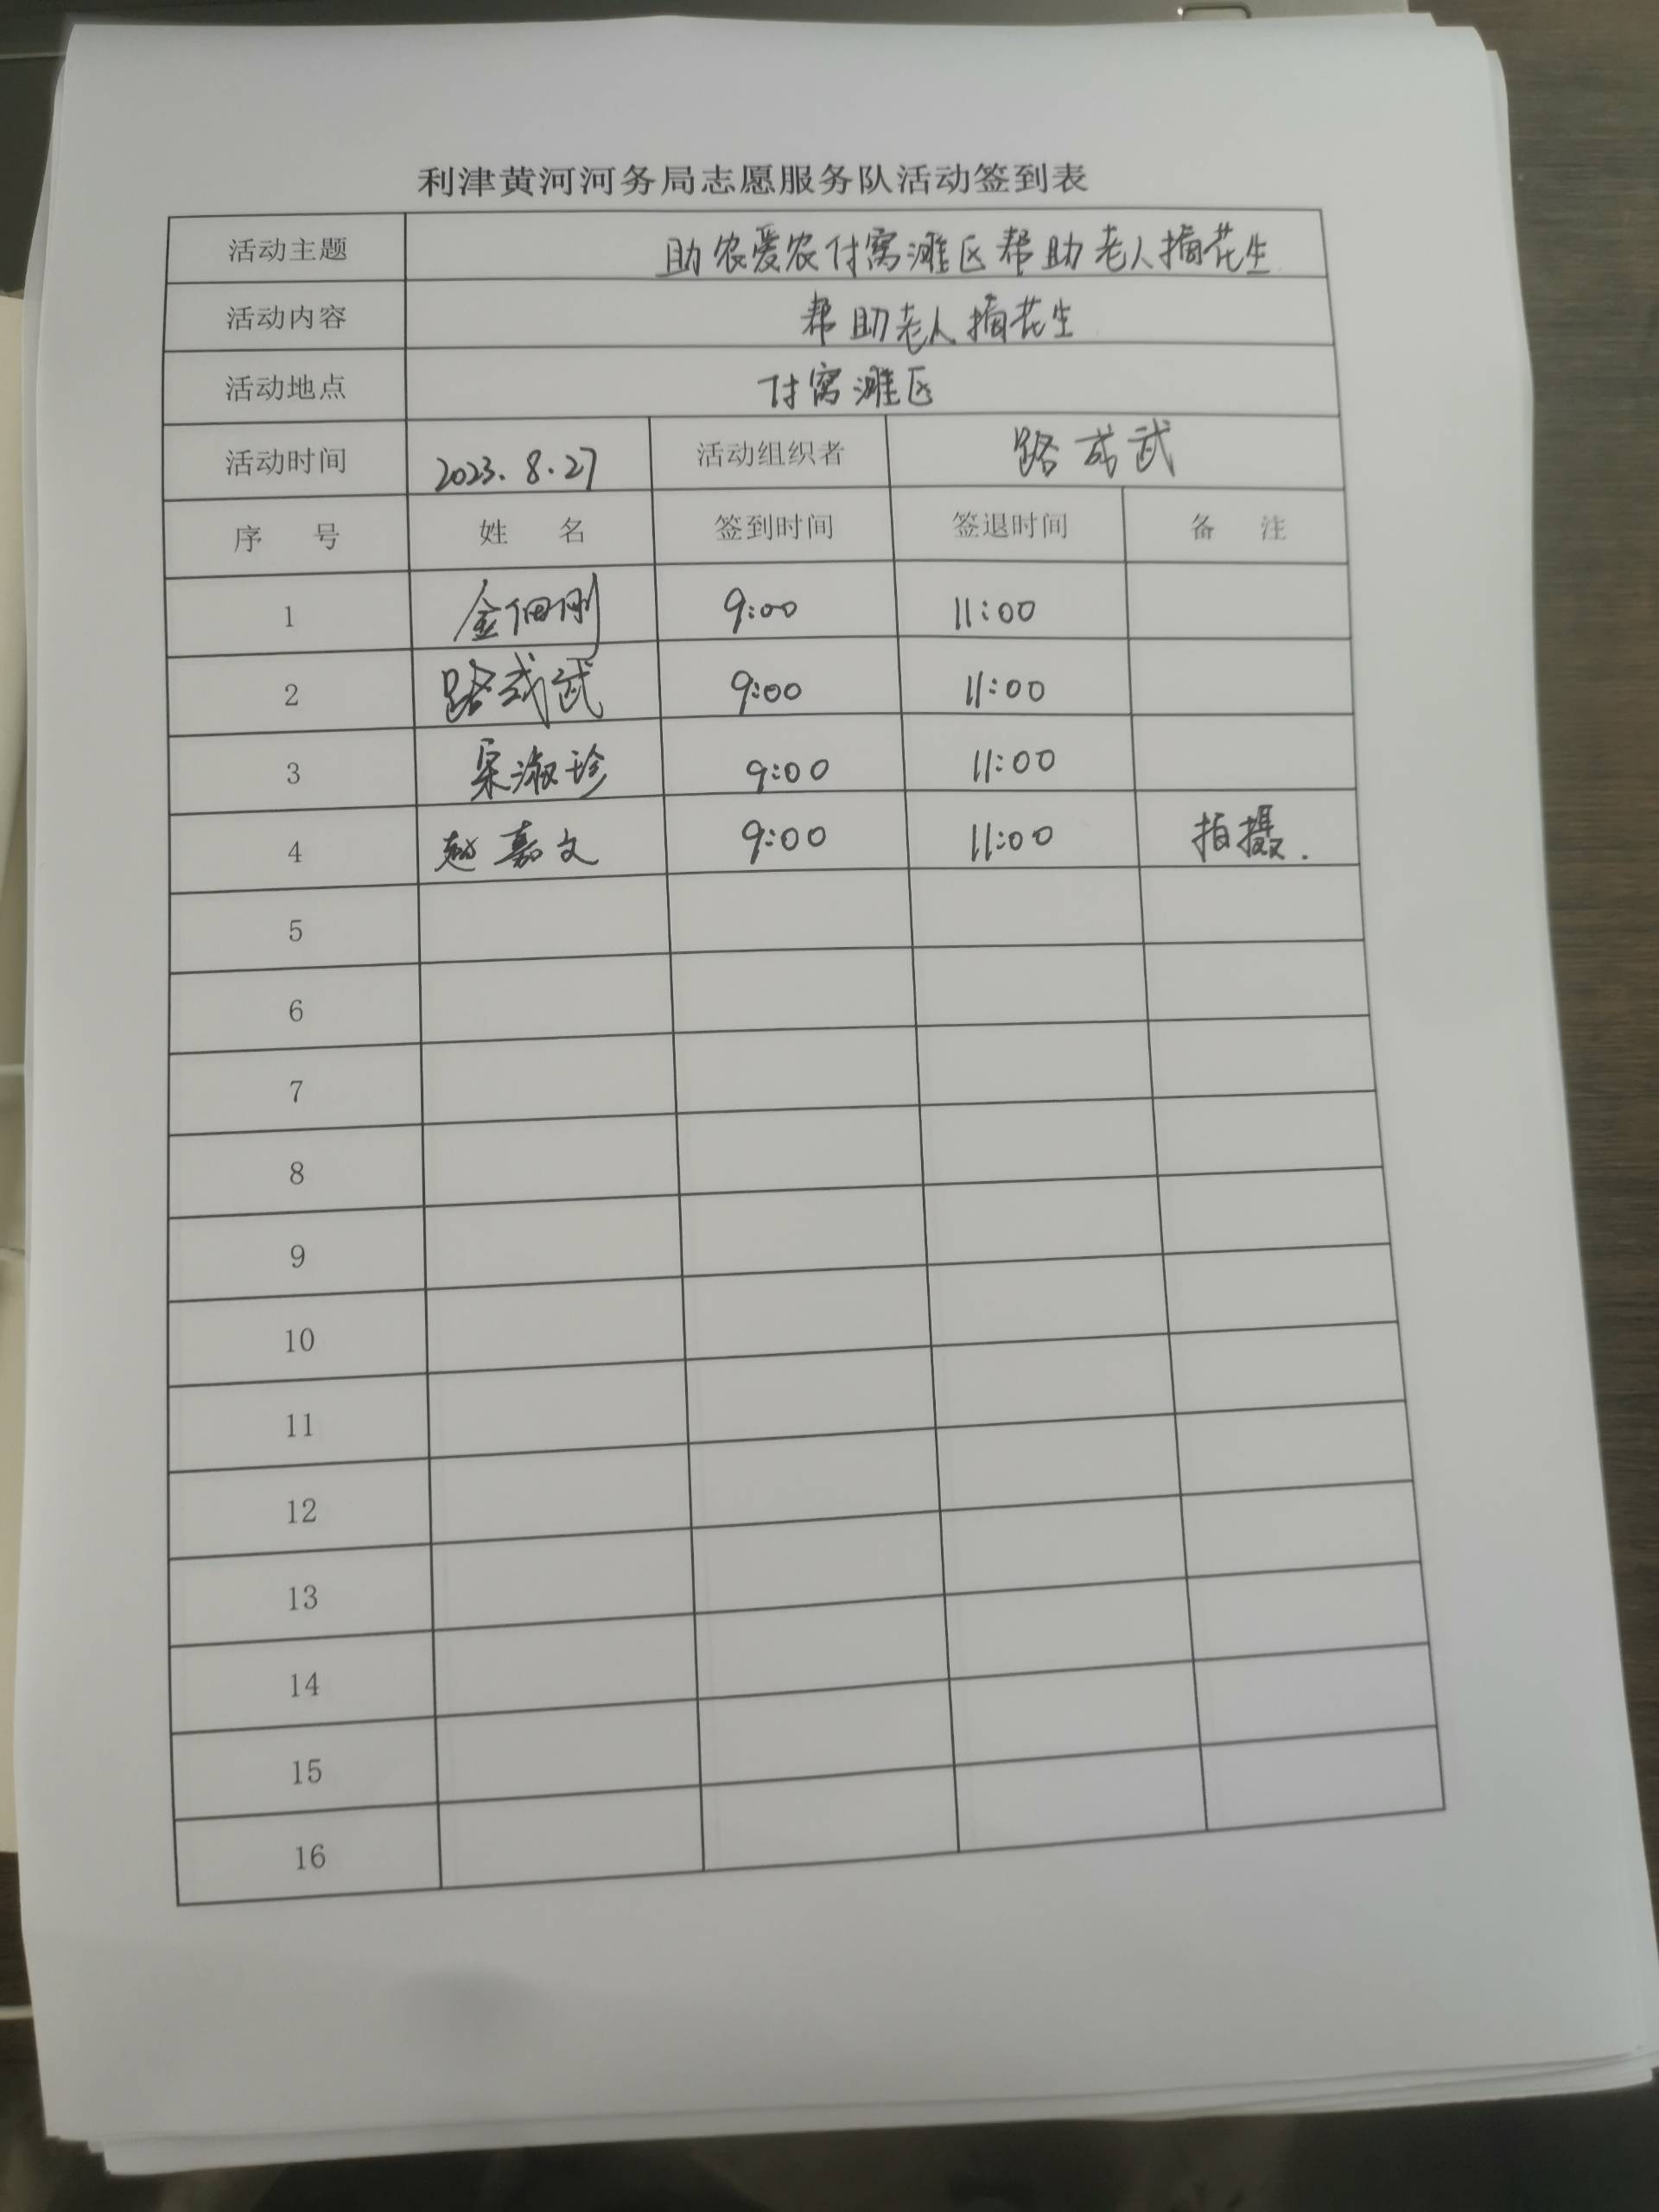 利津黄河河务局志愿服务队活动签到表
活动主题 助农爱农付窝滩区帮助老人摘花生
活动内容 帮助老人摘花生
活动地点 付窝滩区
活动时间 2023.8.27 活动组织者 路成武
序号 姓名 签到时间 签退时间 备注
1 金佃刚 9:00 11:00
2 路成武 9:00 11:00
3 宋淑珍 9:00 11:00
4 赵嘉文 9:00 11:00 拍摄.
5
6
7
8
9
10
11
12
13
14
15
16